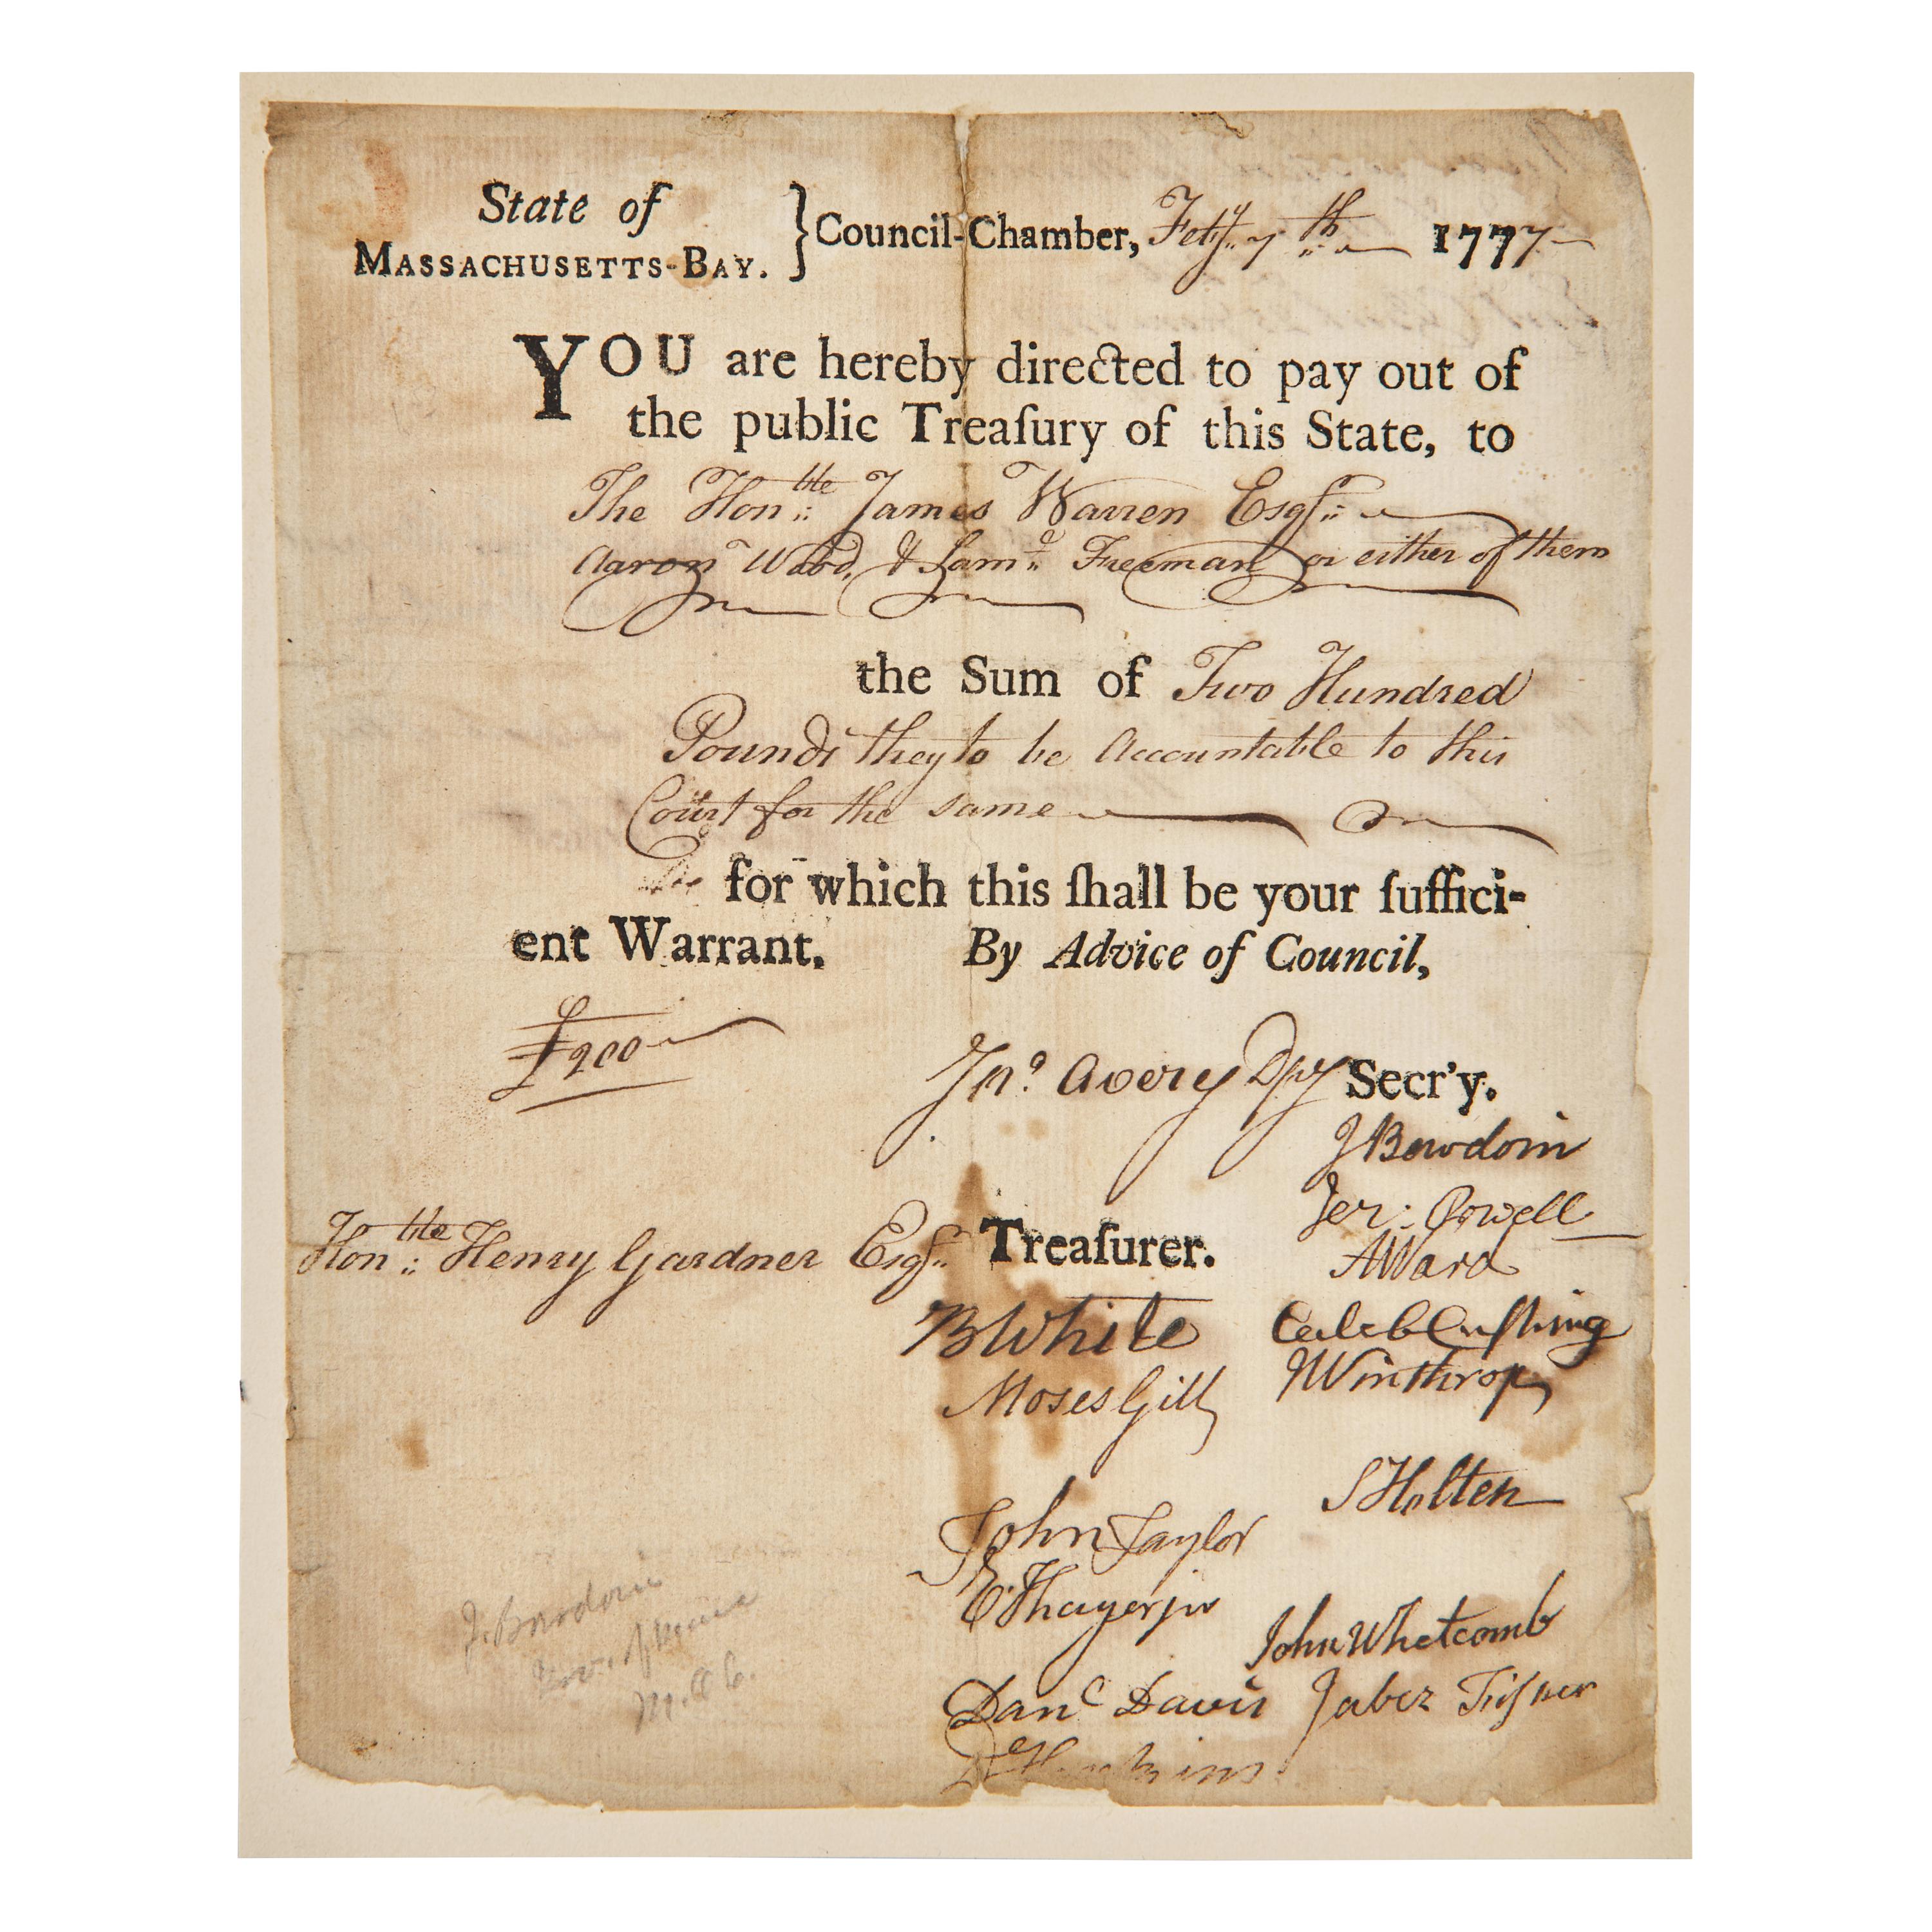 State of
MASSACHUSETTS-BAY. } Council-Chamber, Feby 7th 1777
YOU are hereby directed to pay out of
the public Treaſury of this State, to
The Honble James Warren Esqr
Aaron Wood, & Saml Freeman or either of them
the Sum of Two Hundred
Pounds they to be Accountable to this
Court for the same
for which this ſhall be your ſuffici-
ent Warrant. By Advice of Council,
£200
Jno Avery Dpy Secr'y.
J Bowdoin
Jer: Powell
To
Honble Henry Gardner Esqr Treaſurer.
A Ward
B White Caleb Cuſhing
Moses Gill J Winthrop
S Holten
John Taylor
E. Thayer jur
John Whetcomb
Danl Davis Jabez Fiſher
D Hopkins
J. Bowdoin